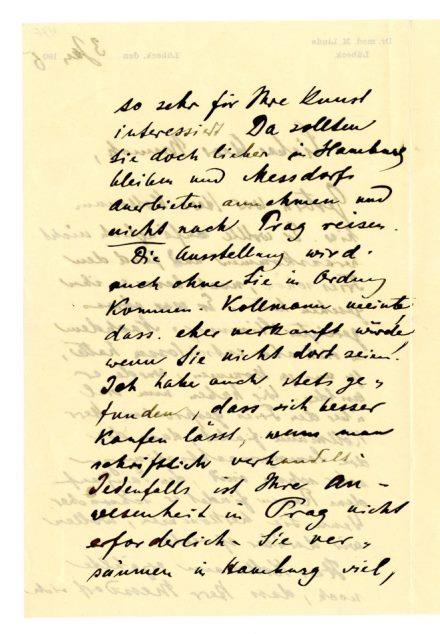 so sehr für Ihre Kunst
interessiert Da sollten
Sie doch lieber in Hamburg
bleiben und Messdorfs
Anerbieten annehmen und
nicht nach Prag reisen.
Die Ausstellung wird
auch ohne Sie in Ordnung
kommen. Kollmann meinte
dass eher verkauft würde,
wenn Sie nicht dort seien!
Ich habe auch stets ge„
funden, dass sich besser
kaufen lässt, wenn man
schriftlich verhandelt.
Jedenfalls ist Ihre An-
wesenheit in Prag nicht
erforderlich. Sie ver„
säumen in Hamburg viel,